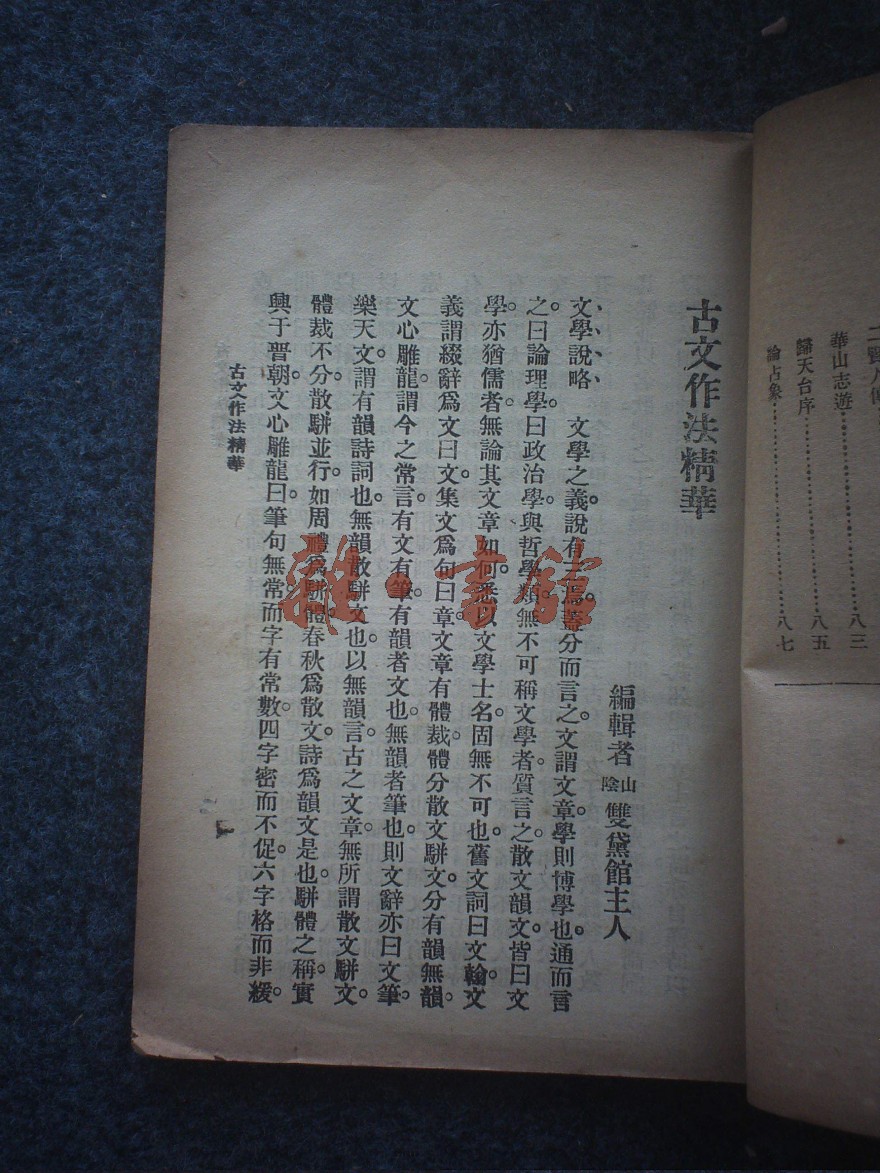 華山志遊……………八三
歸天台序……………八五
論占象……………八七
古文作法精華
編輯者 山陰 雙黛館主人
文學說略 文學之義說有二焉。蓋分而言之。文謂文章。學則博學也。通而言
之。曰論理學。曰政治學。與哲學類。無不可稱文學者。質言之。散文韻文。皆曰文
學。亦猶儒者。無論其文章如何。悉以文學士名。固無不可也。舊文詞曰文翰。文
義謂綴辭爲文曰文。集文爲句曰章。文章有體裁。體分散文駢文。分有韻無韻。
文心雕龍。謂今之常言。有文有筆。有韻者文也。無韻者筆也。則文辭亦曰文筆。
樂天文。謂有韻詩詞也。無韻散駢文也。以無韻言。古之文章。無所謂散文駢文。
體裁不分。散駢並行。如周禮爲駢體。春秋爲散文。詩爲韻文是也。駢體之稱。實
興于晋朝。文心雕龍曰。筆句無常。而字有常數。四字密而不促。六字格而非緩。
古文作法精華
雜·書館